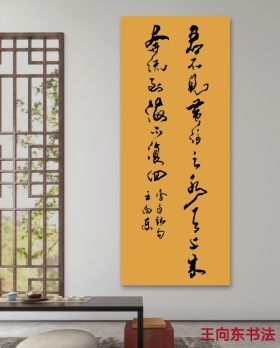 君不见黄河之水天上来
奔流到海不复回
李白诗句
王向东
王向东书法